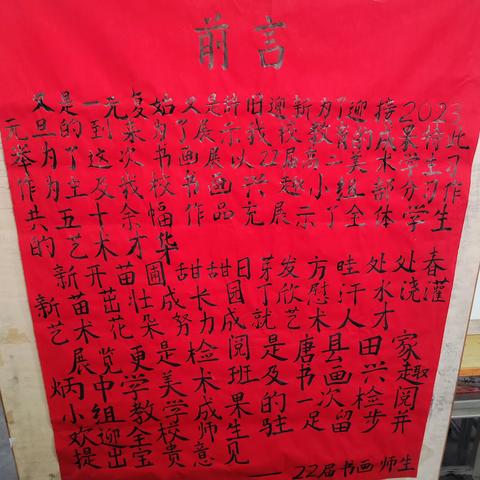 前言
又是一元复始又是辞旧迎新为了迎接2023
元旦的到来为了展示我校教育的成果特此
举办了这次书画展展以22届高二美术学生习
作为主及我校书画兴趣小组部分习作
共五十余幅作品充分展示了全体学生
的艺术才华
新开苗圃甜甜日芽发方哇处处春
新苗茁壮成长园丁欣慰汗水浇灌
艺术花朵努力成就艺术人才
展览更是检阅是唐县田家
炳中学美术班及书画兴趣
小组教学成果的一次检阅并
欢迎全校师生驻足留步
提出宝贵意见
——22届书画师生